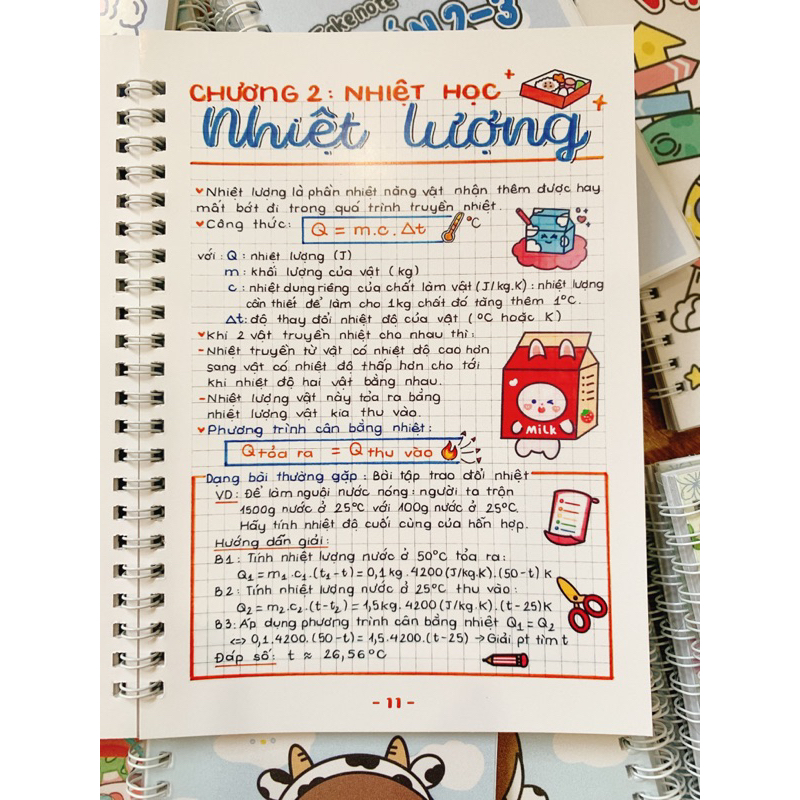 Take note
2-3
CHƯƠNG 2: NHIỆT HỌC
Nhiệt lượng
Nhiệt lượng là phần nhiệt năng vật nhận thêm được hay
mất bớt đi trong quá trình truyền nhiệt.
Công thức: Q = m.c.Δt °C
với: Q: nhiệt lượng (J)
m: khối lượng của vật (kg)
c: nhiệt dung riêng của chất làm vật (J/kg.K): nhiệt lượng
cần thiết để làm cho 1kg chất đó tăng thêm 1°C.
Δt: độ thay đổi nhiệt độ của vật (°C hoặc K)
Khi 2 vật truyền nhiệt cho nhau thì:
- Nhiệt truyền từ vật có nhiệt độ cao hơn
sang vật có nhiệt độ thấp hơn cho tới
khi nhiệt độ hai vật bằng nhau.
- Nhiệt lượng vật này tỏa ra bằng
nhiệt lượng vật kia thu vào.
MiLK
Phương trình cân bằng nhiệt:
Q tỏa ra = Q thu vào
Dạng bài thường gặp: Bài tập trao đổi nhiệt
VD: Để làm nguội nước nóng: người ta trộn
1500g nước ở 25°C với 100g nước ở 25°C.
Hãy tính nhiệt độ cuối cùng của hỗn hợp.
Hướng dẫn giải:
B1: Tính nhiệt lượng nước ở 50°C tỏa ra:
Q₁ = m₁.c₁.(t₁-t) = 0,1kg.4200(J/kg.K).(50-t) K
B2: Tính nhiệt lượng nước ở 25°C thu vào:
Q₂ = m₂.c₂.(t-t₂) = 1,5kg.4200(J/kg.K).(t-25)K
B3: Áp dụng phương trình cân bằng nhiệt Q₁ = Q₂
⇔ 0,1.4200.(50-t) = 1,5.4200.(t-25) → Giải pt tìm t
Đáp số: t ≈ 26,56°C
- 11 -